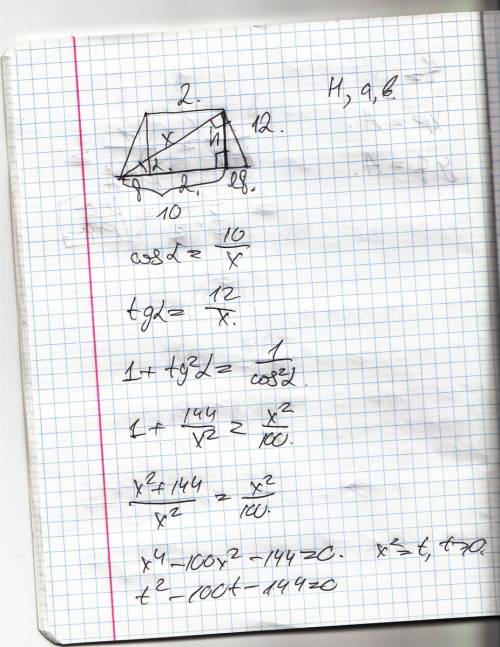 H, a, b.
2.
12.
x
H
2.
8
2.
8.
10
cosα = 10/x
tgα = 12/x.
1 + tg²α = 1/cos²α.
1 + 144/x² = x²/100.
(x²+144)/x² = x²/100.
x⁴ – 100x² – 144 = 0. x² = t, t>0.
t² – 100t – 144 = 0